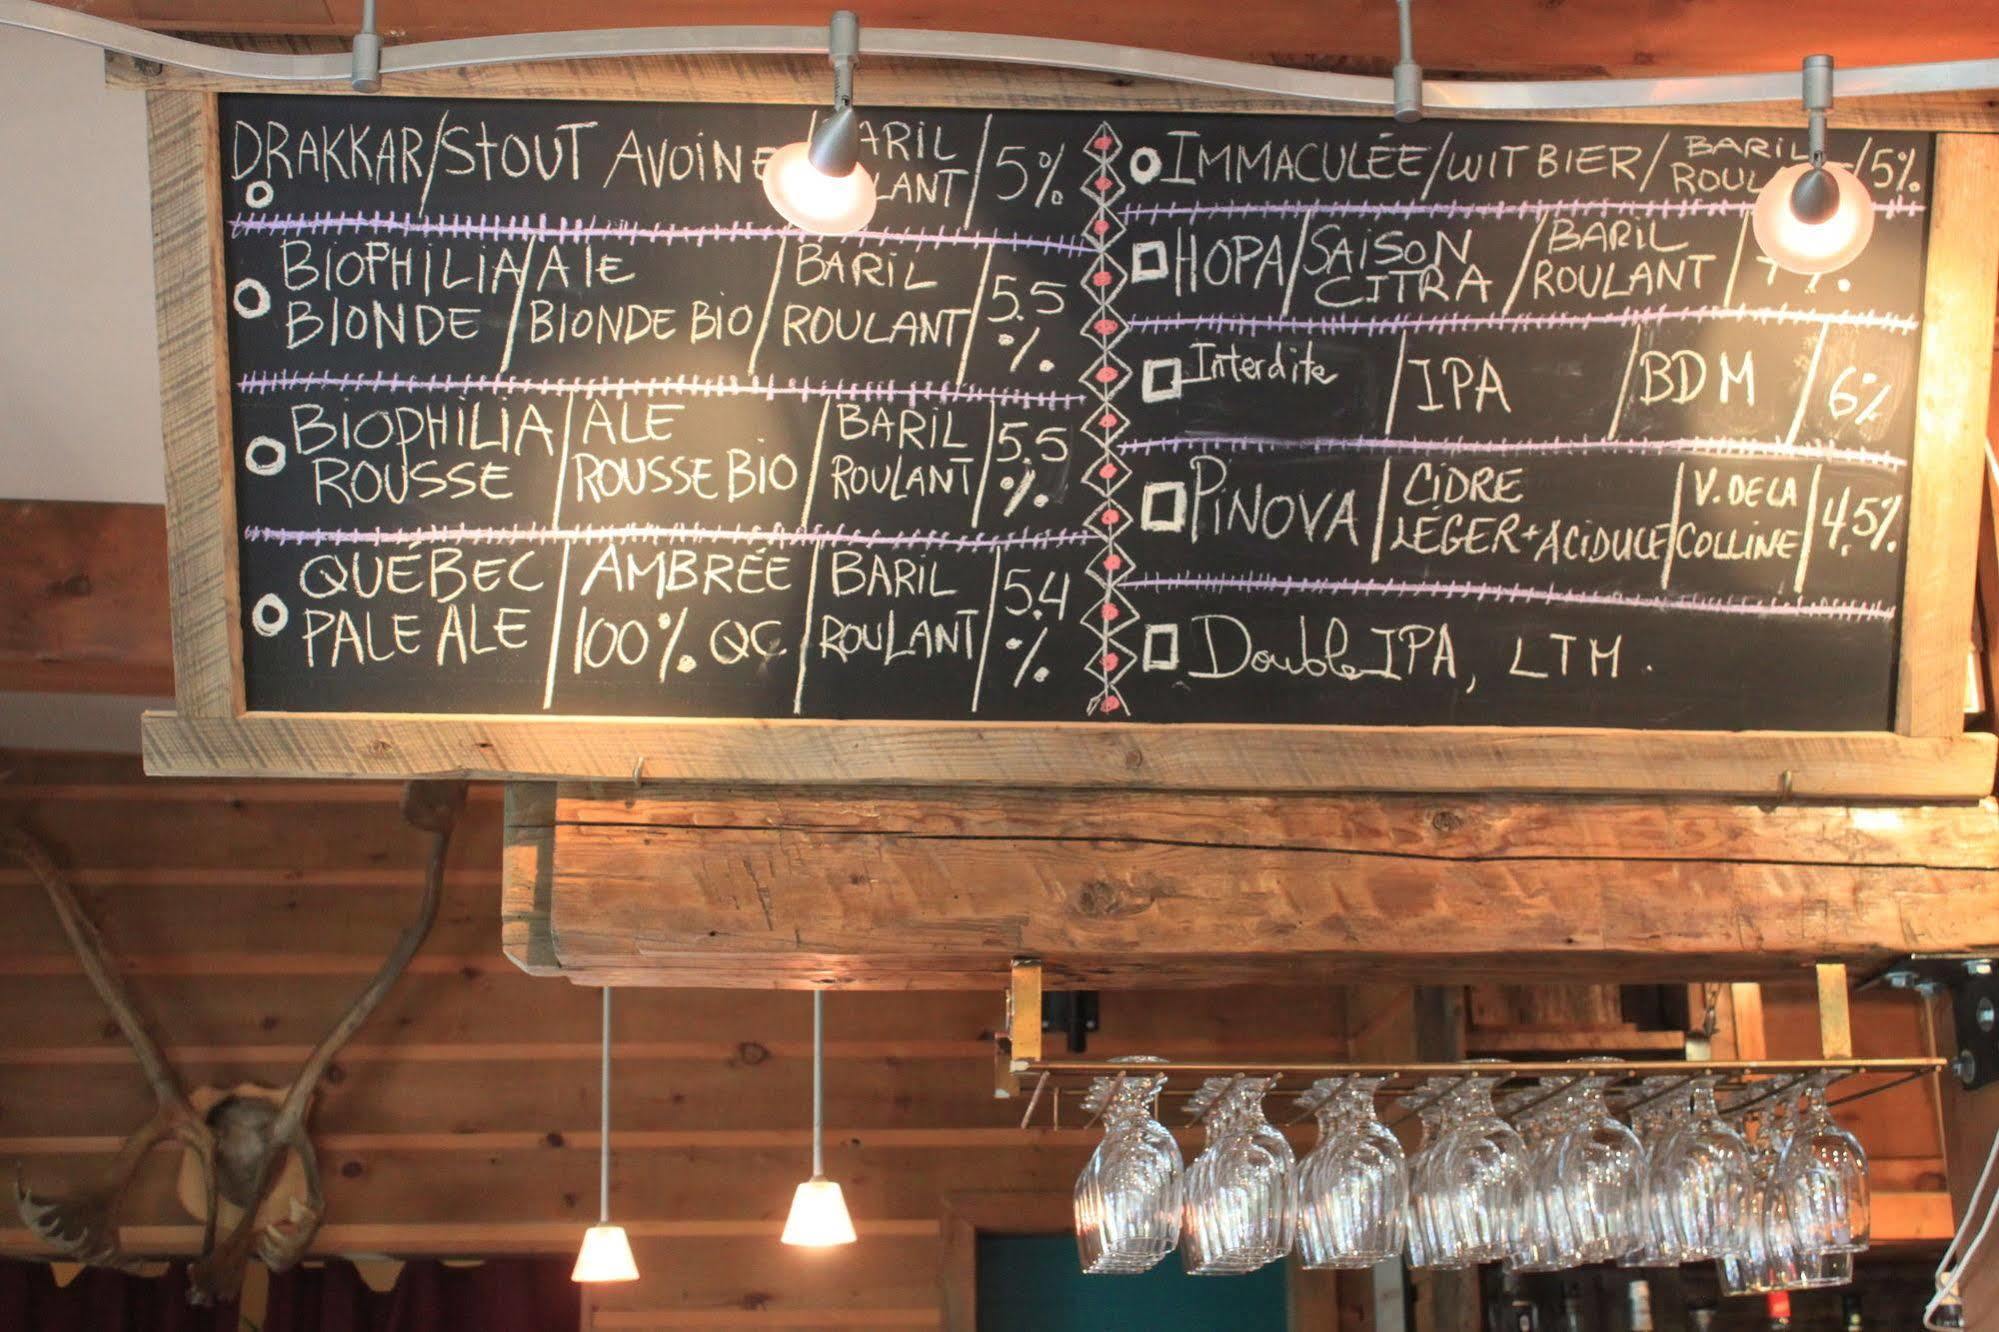 DRAKKAR/STOUT AVOINE ARIL
LANT/5%
BIOPHILIA/ALE / BARIL
BLONDE / BLONDE BIO / ROULANT / 5.5
%
BIOPHILIA / ALE / BARIL
ROUSSE / ROUSSE BIO / ROULANT / 5.5
%
QUÉBEC / AMBRÉE / BARIL
PALE ALE / 100% QC / ROULANT / 5.4
%
IMMACULÉE/WIT BIER/ BARIL
/5%
HOPA/SAISON / BARIL
CITRA / ROULANT /
Interdite / IPA / BDM / 6%
PINOVA / CIDRE / V. DE LA
LÉGER+ACIDULÉ / COLLINE / 4.5%
Double IPA, LTM.